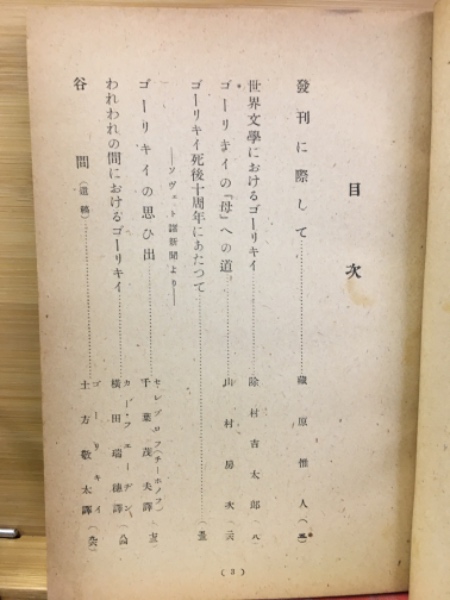 目次
發刊に際して……藏原惟人(五)
世界文學におけるゴーリキイ……除村吉太郎(八)
ゴーリキイの『母』への道……山村房次
ゴーリキイ死後十周年にあたつて
――ソヴェト諸新聞より――
ゴーリキイの思ひ出……セレブロフ(チーホノフ) 千葉茂夫譯
われわれの間におけるゴーリキイ……カー・フェーヂン 横田瑞穗譯
谷間(遺稿)……ゴーリキイ 土方敬太譯
(3)